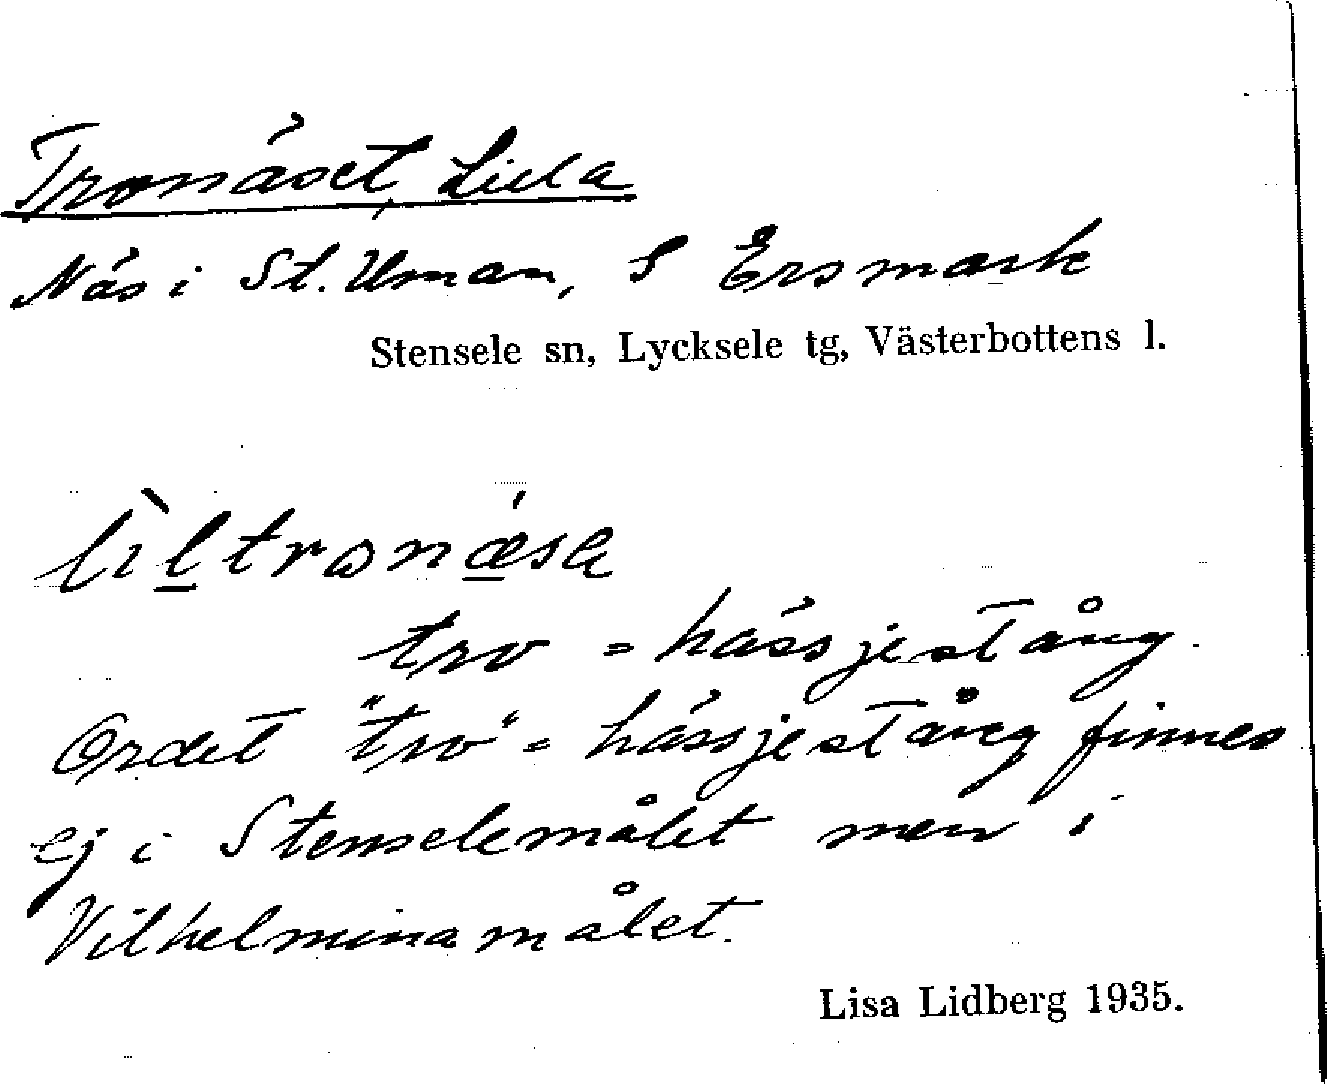 Tronäset, Lilla
Näs i St. Uman, S Ersmark
Stensele sn, Lycksele tg, Västerbottens l.
lìltronǽsa
tro = hässjestång
Ordet "tro" = hässjestång finnes
ej i Stenselemålet men i
Vilhelminamålet.
Lisa Lidberg 1935.